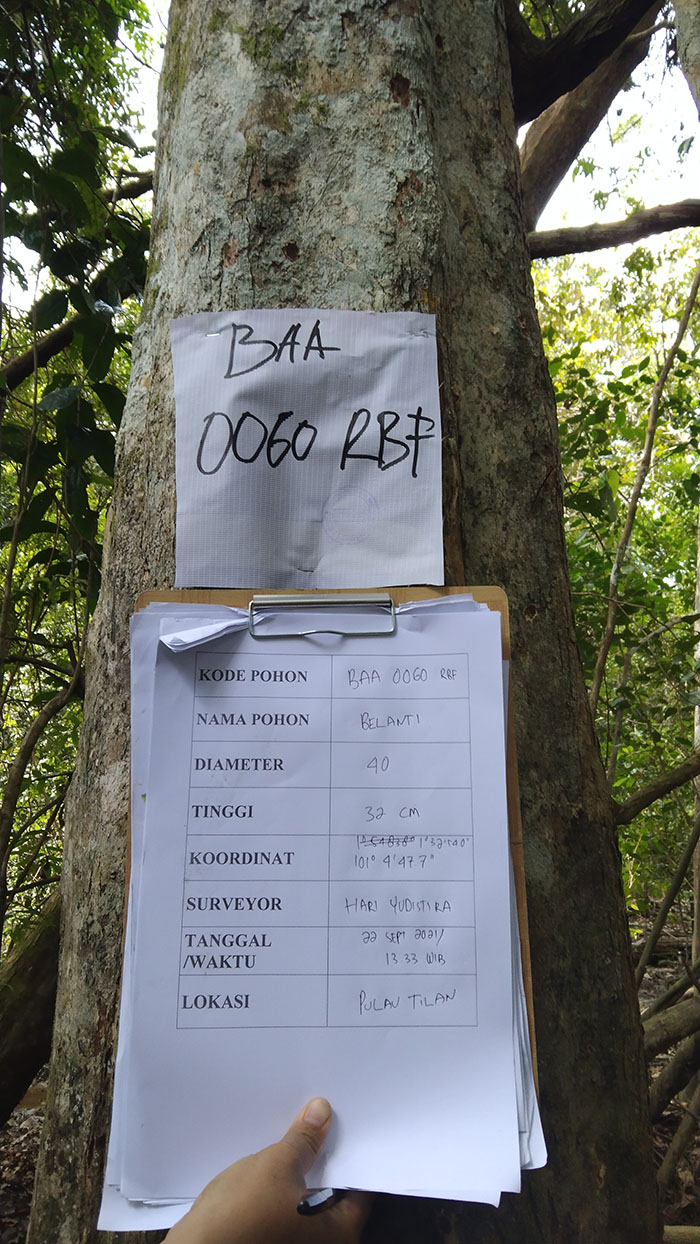 BAA
0060 RBF
KODE POHON BAA 0060 RBF
NAMA POHON BELANTI
DIAMETER 40
TINGGI 32 CM
KOORDINAT 1°32'540"
101° 4'47.7"
SURVEYOR HARI YUDISTIRA
TANGGAL 22 SEPT 2021/
/WAKTU 13 33 WIB
LOKASI PULAU TILAN